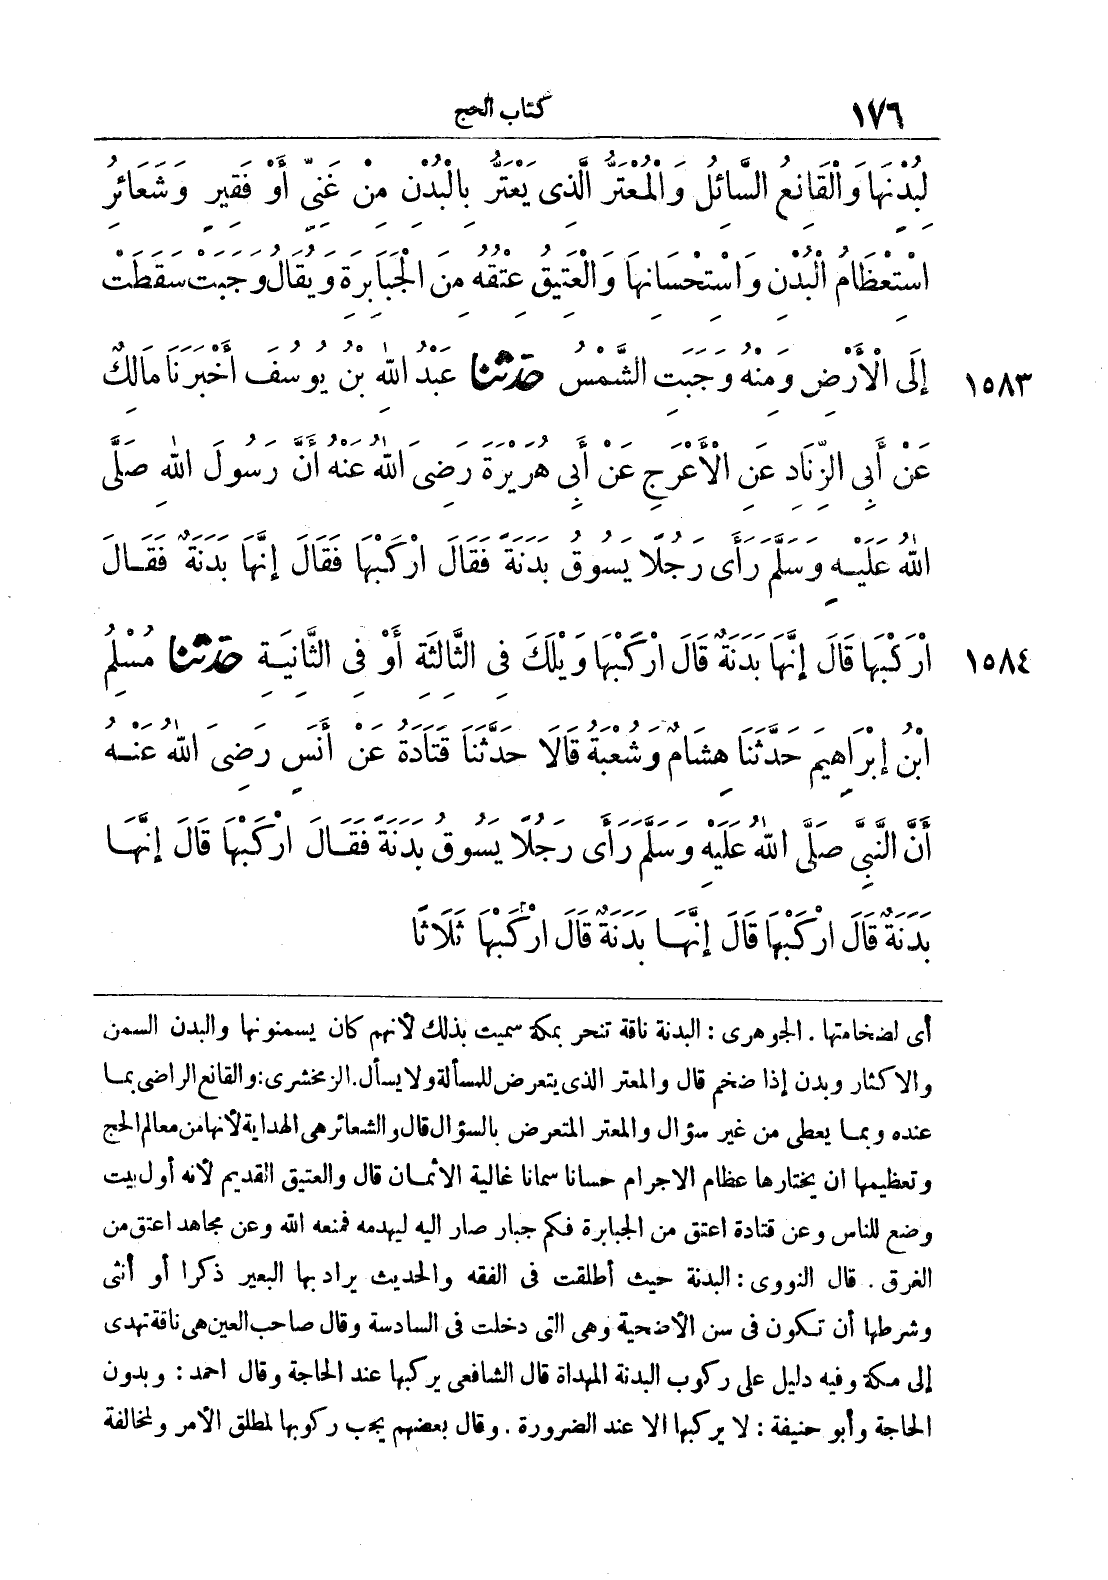 ١٧٦
كتاب الحج
لِبُدْنِهَا وَالْقَانِعُ السَّائِلُ وَالْمُعْتَرُّ الَّذِى يَعْتَرُّ بِالْبُدْنِ مِنْ غَنِىٍّ أَوْ فَقِيرٍ وَشَعَائِرُ
اسْتِعْظَامُ الْبُدْنِ وَاسْتِحْسَانِهَا وَالْعَتِيقُ عِتْقُهُ مِنَ الْجَبَابِرَةِ وَيُقَالُ وَجَبَتْ سَقَطَتْ
١٥٨٣ إِلَى الْأَرْضِ وَمِنْهُ وَجَبَتِ الشَّمْسُ حَدَّثَنَا عَبْدُ اللهِ بْنُ يُوسُفَ أَخْبَرَنَا مَالِكٌ
عَنْ أَبِى الزِّنَادِ عَنِ الْأَعْرَجِ عَنْ أَبِى هُرَيْرَةَ رَضِىَ اللهُ عَنْهُ أَنَّ رَسُولَ اللهِ صَلَّى
اللهُ عَلَيْهِ وَسَلَّمَ رَأَى رَجُلًا يَسُوقُ بَدَنَةً فَقَالَ ارْكَبْهَا فَقَالَ إِنَّهَا بَدَنَةٌ فَقَالَ
١٥٨٤ ارْكَبْهَا قَالَ إِنَّهَا بَدَنَةٌ قَالَ ارْكَبْهَا وَيْلَكَ فِى الثَّالِثَةِ أَوْ فِى الثَّانِيَةِ حَدَّثَنَا مُسْلِمُ
ابْنُ إِبْرَاهِيمَ حَدَّثَنَا هِشَامٌ وَشُعْبَةُ قَالَا حَدَّثَنَا قَتَادَةُ عَنْ أَنَسٍ رَضِىَ اللهُ عَنْهُ
أَنَّ النَّبِىَّ صَلَّى اللهُ عَلَيْهِ وَسَلَّمَ رَأَى رَجُلًا يَسُوقُ بَدَنَةً فَقَالَ ارْكَبْهَا قَالَ إِنَّهَا
بَدَنَةٌ قَالَ ارْكَبْهَا قَالَ إِنَّهَا بَدَنَةٌ قَالَ ارْكَبْهَا ثَلَاثًا
أى لضخامتها. الجوهرى: البدنة ناقة تنحر بمكة سميت بذلك لأنهم كان يسمنونها والبدن السمن
والاكثار وبدن إذا ضخم قال والمعتر الذى يتعرض للمسألة ولا يسأل. الزمخشرى: والقانع الراضى بما
عنده وبما يعطى من غير سؤال والمعتر المتعرض بالسؤال قال والشعائر هى الهداية لأنها من معالم الحج
وتعظيمها ان يختارها عظام الاجرام حسانا سمانا غالية الأثمان قال والعتيق القديم لأنه أول بيت
وضع للناس وعن قتادة اعتق من الجبابرة فكم جبار صار اليه ليهدمه فمنعه الله وعن مجاهد اعتق من
الغرق. قال النووى: البدنة حيث أطلقت فى الفقه والحديث يراد بها البعير ذكرا أو أنثى
وشرطها أن تكون فى سن الأضحية وهى التى دخلت فى السادسة وقال صاحب العين هى ناقة تهدى
إلى مكة وفيه دليل على ركوب البدنة المهداة قال الشافعى يركبها عند الحاجة وقال احمد: وبدون
الحاجة وأبو حنيفة: لا يركبها الا عند الضرورة. وقال بعضهم يجب ركوبها لمطلق الأمر ولمخالفة